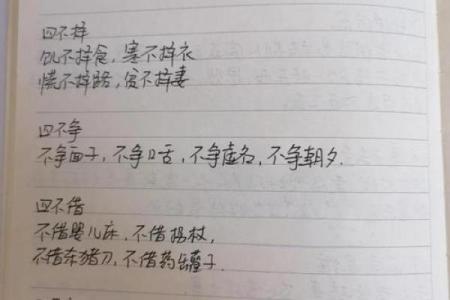 四不择
饥不择食，寒不择衣
慌不择路，贫不择妻
四不争
不争面子，不争口舌，不争虚名，不争朝夕.
四不借
不借婴儿床，不借拐杖，
不借杀猪刀，不借药罐子.